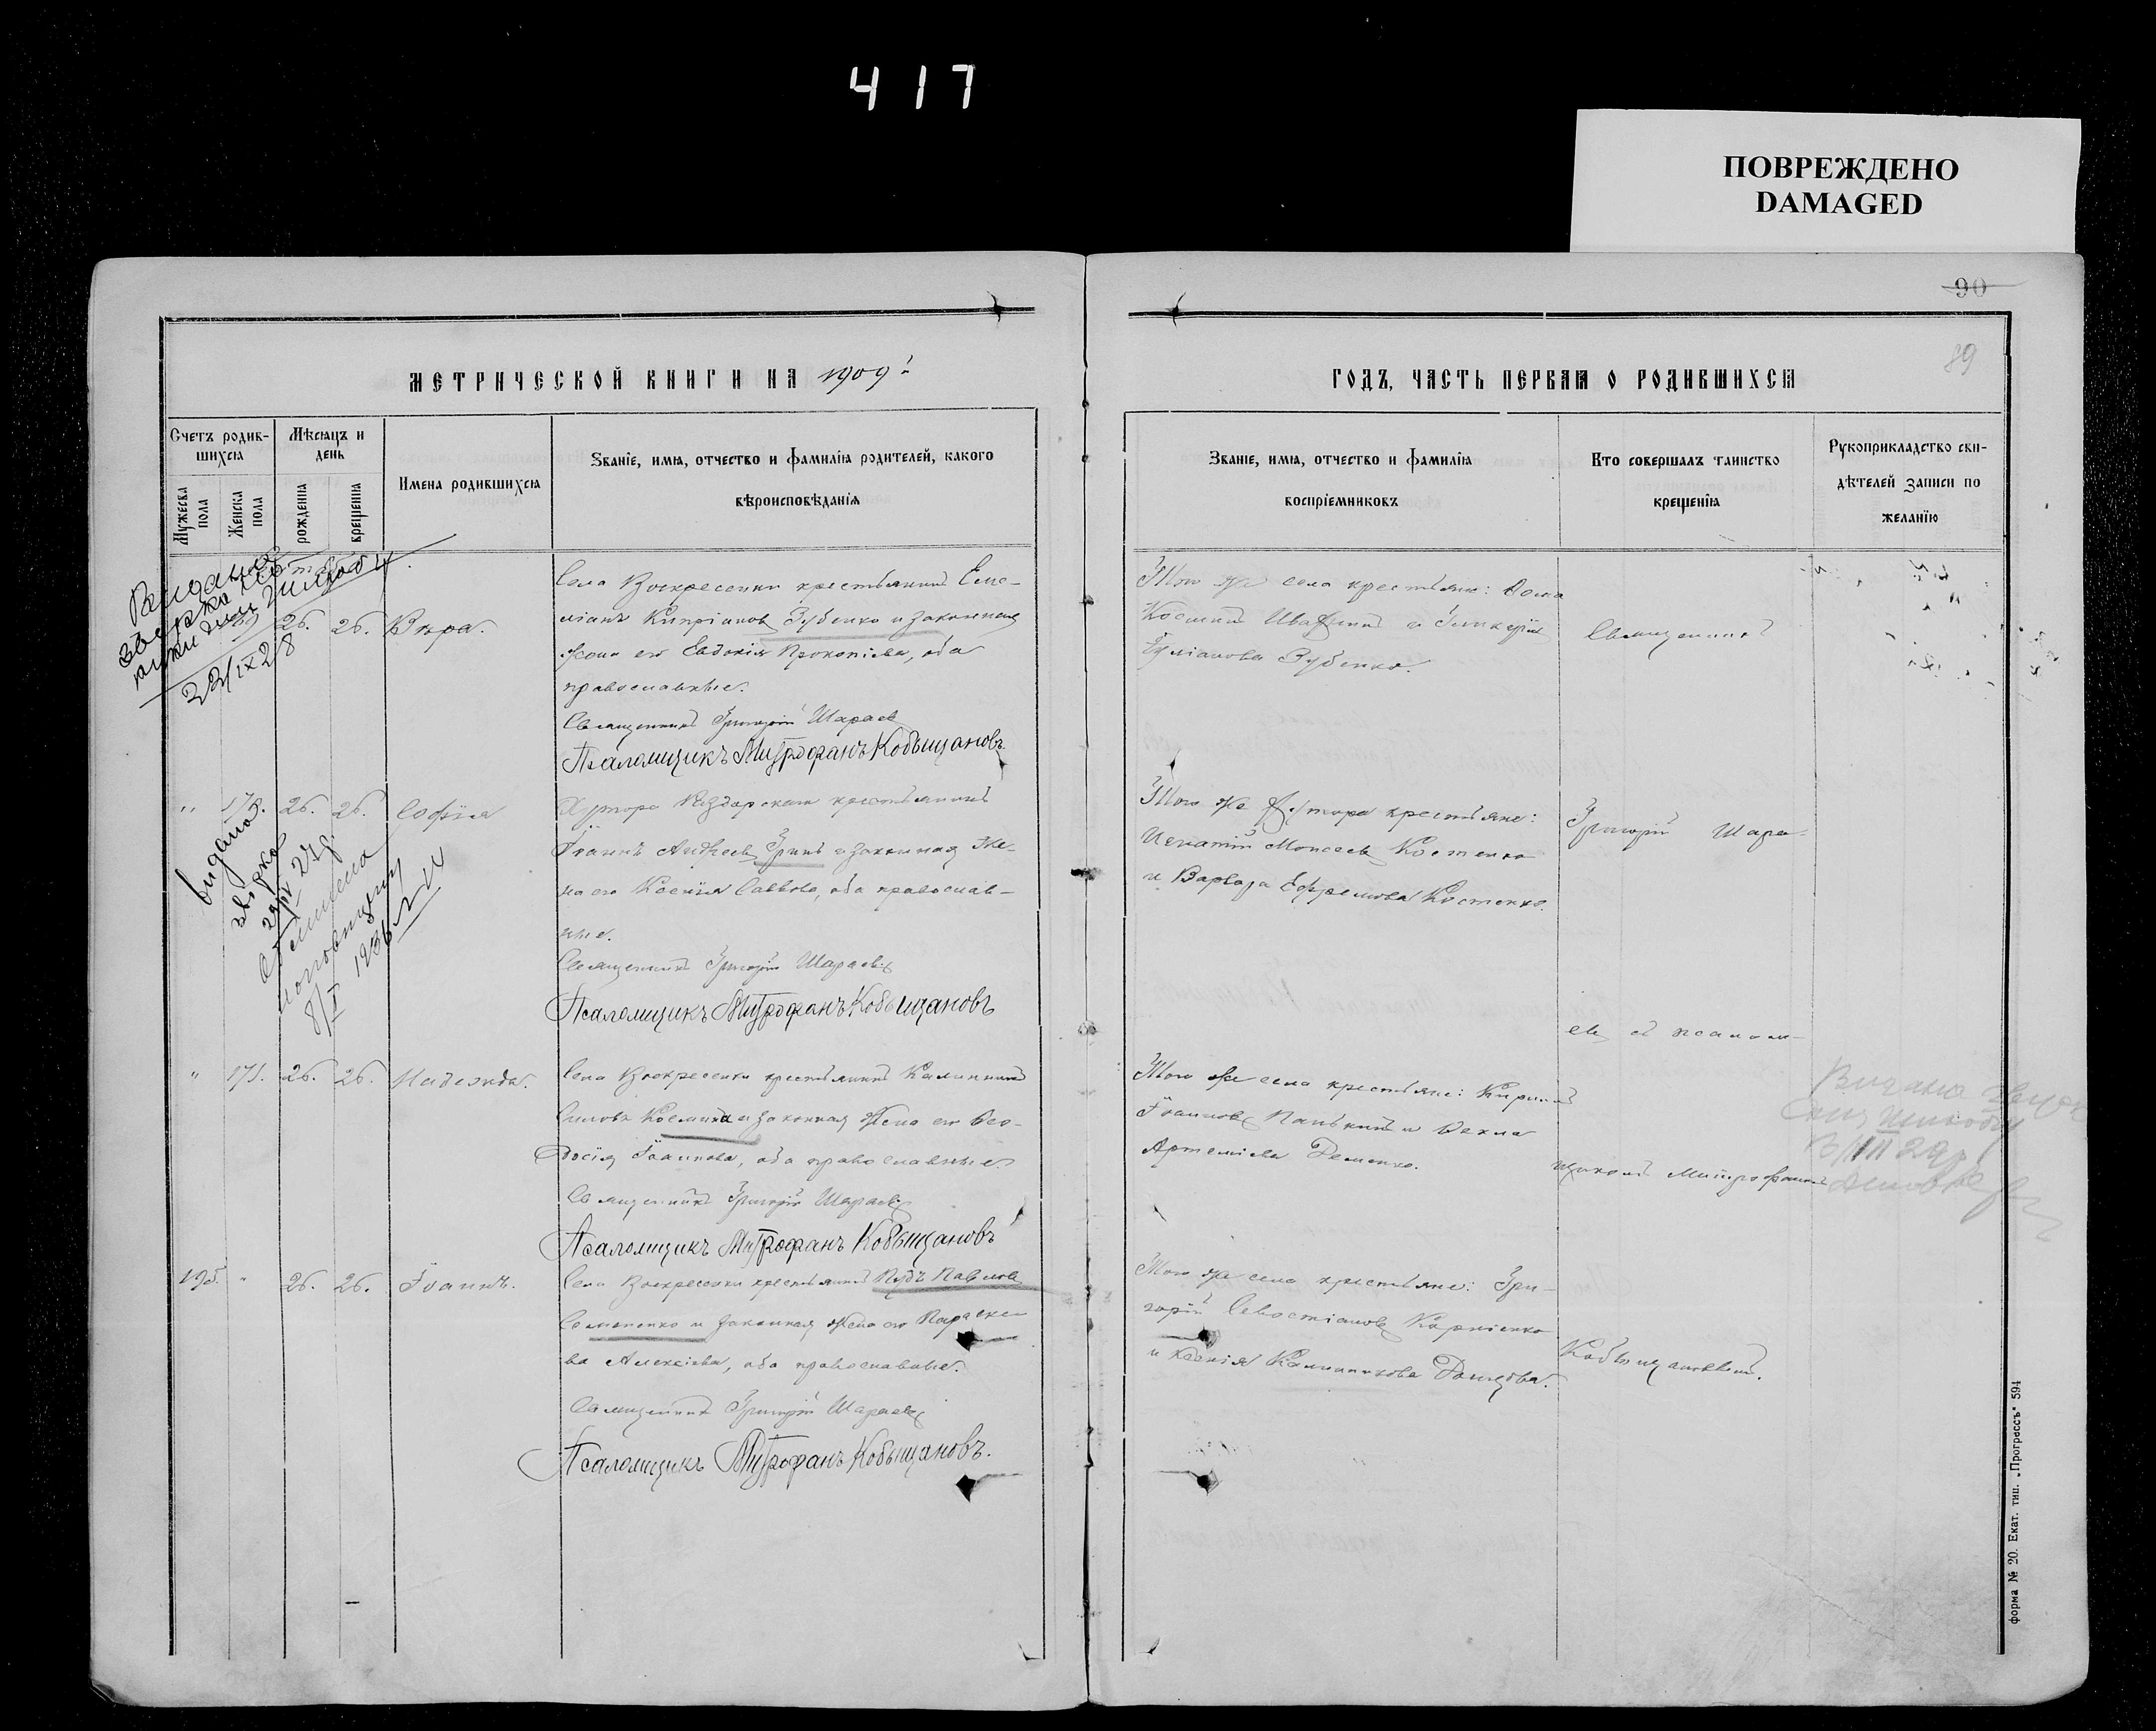 417
ПОВРЕЖДЕНО
DAMAGED
90
89
МЕТРИЧЕСКОЙ КНИГИ НА 1909
ГОДЪ, ЧАСТЬ ПЕРВАЯ О РОДИВШИХСЯ
Счетъ родив-
шихся
Мужеска пола
Женска пола
Мѣсяцъ и
день
рожденія
крещенія
Имена родившихся
Званіе, имя, отчество и фамилія родителей, какого
вѣроисповѣданія
Званіе, имя, отчество и фамилія
воспріемниковъ
Кто совершалъ таинство
крещенія
Рукоприкладство сви-
дѣтелей записи по
желанію
26. 26. Вѣра.
Села Воскресенки крестьянинъ Еме-
ліанъ Кипріановъ Зубенко и законная
жена его Евдокія Прокопіева, оба
православные.
Священникъ Григорій Шараевъ
Псаломщикъ Митрофанъ Кобыщановъ
Того же села крестьяне: Фома
Косминъ и
Зубенко.
Священникъ
26. 26. Софія
Хутора крестьянинъ
Іоаннъ Андреевъ Гринь и законная же-
на его Ксенія Саввова, оба православ-
ные.
Священникъ Григорій Шараевъ
Псаломщикъ Митрофанъ Кобыщановъ
Того же хутора крестьяне:
Игнатій Моисеевъ Костенко
и Варвара Ефремова Костенко.
Григорій Шара-
евъ съ псалом-
" 171. 26. 26. Надежда.
Села Воскресенки крестьянинъ Калинникъ
Силовъ Космина и законная жена его Фео-
досія Іоаннова, оба православные.
Священникъ Григорій Шараевъ
Псаломщикъ Митрофанъ Кобыщановъ
Того же села крестьяне:
Іоанновъ и Фекла
Артеміева Деменко.
щикомъ Митрофаномъ
195. " 26. 26. Іоаннъ.
Села Воскресенки крестьянинъ Пудъ Павловъ
Семененко и законная жена его Параске-
ва Алексіева, оба православные.
Священникъ Григорій Шараевъ
Псаломщикъ Митрофанъ Кобыщановъ.
Того же села крестьяне: Гри-
горій Севастіановъ Карпенко
и Ксенія Калинникова Донцова.
Кобыщановымъ.
видано
форма № 20. Екат. тип. „Прогрессъ" 594